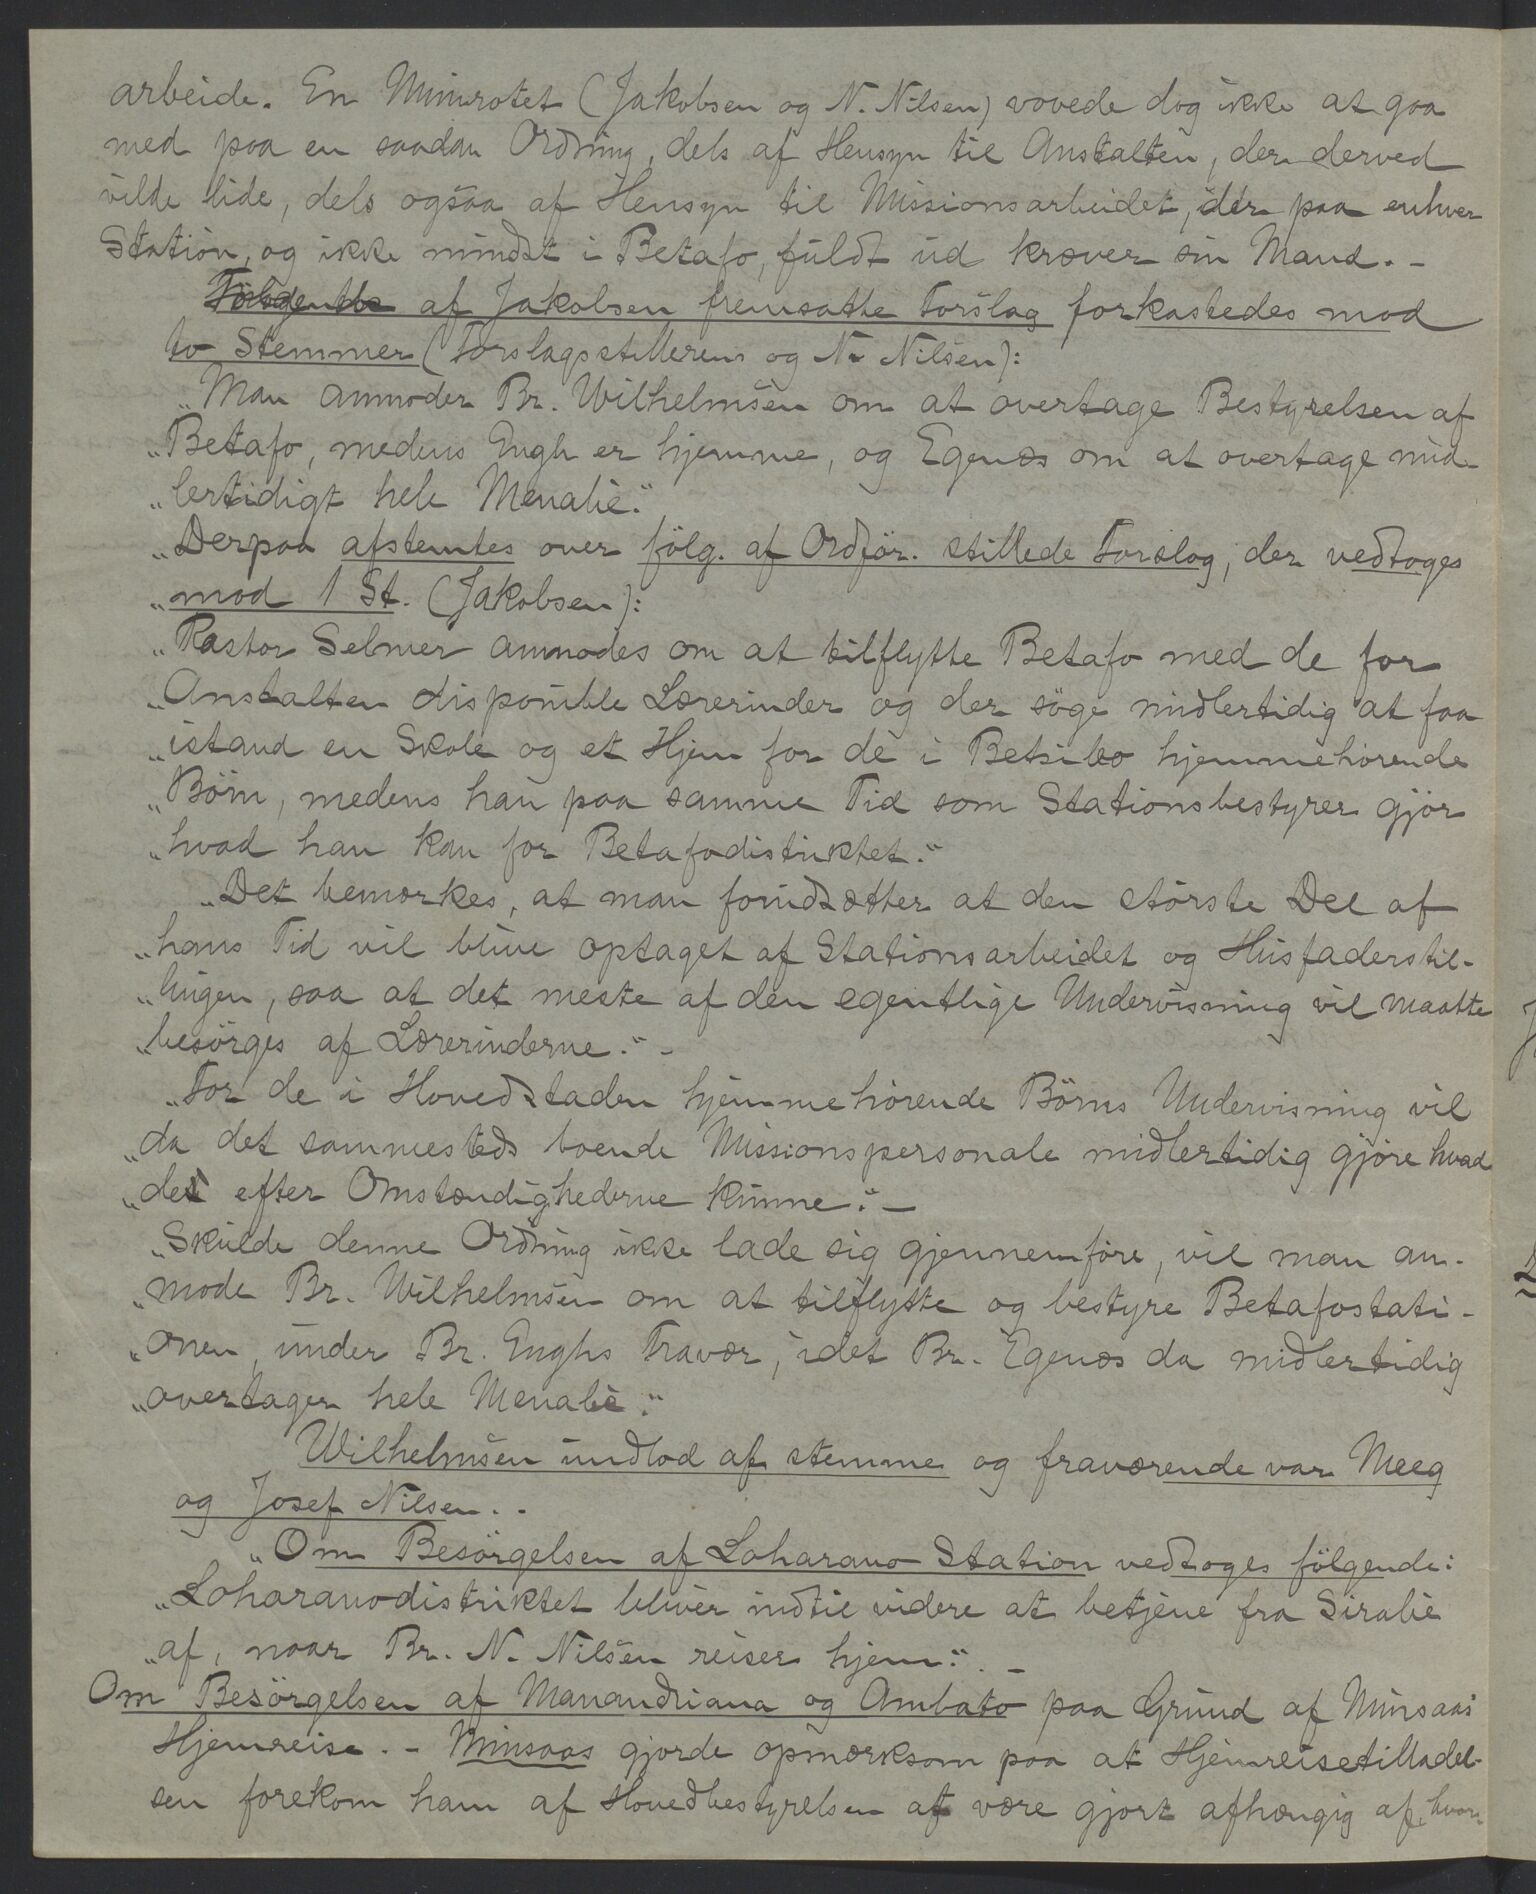 arbeide. En Minorotet (Jakobsen og N. Nilsen) vovede dog ikke at gaa
med paa en saadan Ordning, dels af Hensyn til Anstalten, der derved
vilde lide, dels ogsaa af Hensyn til Missionsarbeidet, der paa enhver
Station, og ikke mindst i Betafo, fuldt ud kræver sin Mand. -
af Jakobsen fremsatte Forslag forkastedes mod
to Stemmer (Forslagsstilleren og N. Nilsen):
„Man anmoder Br. Wilhelmsen om at overtage Bestyrelsen af
„Betafo, medens Engh er hjemme, og Egenæs om at overtage mid-
„lertidigt hele Menabe."
„Derpaa afstemtes over fölg. af Ordför. stillede Forslag, der vedtoges
„mod 1 St. (Jakobsen):
„Pastor Selmer anmodes om at tilflytte Betafo med de for
„Anstalten disponible Lærerinder og der söge midlertidig at faa
„istand en Skole og et Hjem for de i Betsileo hjemmehörende
„Börn, medens han paa samme Tid som Stationsbestyrer gjör
„hvad han kan for Betafodistriktet."
„Det bemærkes, at man forudsætter at den störste Del af
„hans Tid vil blive optaget af Stationsarbeidet og Husfaderstil-
„lingen, saa at det meste af den egentlige Undervisning vil maatte
„besörges af Lærerinderne." -
„For de i Hovedstaden hjemmehörende Börns Undervisning vil
„da det sammesteds boende Missionspersonale midlertidig gjöre hvad
„de efter Omstændighederne kunne." -
„Skulde denne Ordning ikke lade sig gjennemföre, vil man an-
„mode Br. Wilhelmsen om at tilflytte og bestyre Betafostati-
„onen, under Br. Enghs Fravær, idet Br. Egenæs da midlertidig
„overtager hele Menabe."
Wilhelmsen undlod af stemme og fraværende var Meeg
og Josef Nilsen. -
„Om Besörgelsen af Loharano Station vedtoges fölgende:
„Loharanodistriktet bliver indtil videre at betjene fra Sirabe
„af, naar Br. N. Nilsen reiser hjem." -
Om Besörgelsen af Manandriana og Ambato paa Grund af Minsaas'
Hjemreise. - Minsaas gjorde opmærksom paa at Hjemreisetilladel-
sen forekom ham af Hovedbestyrelsen at være gjort afhængig af, hvor-